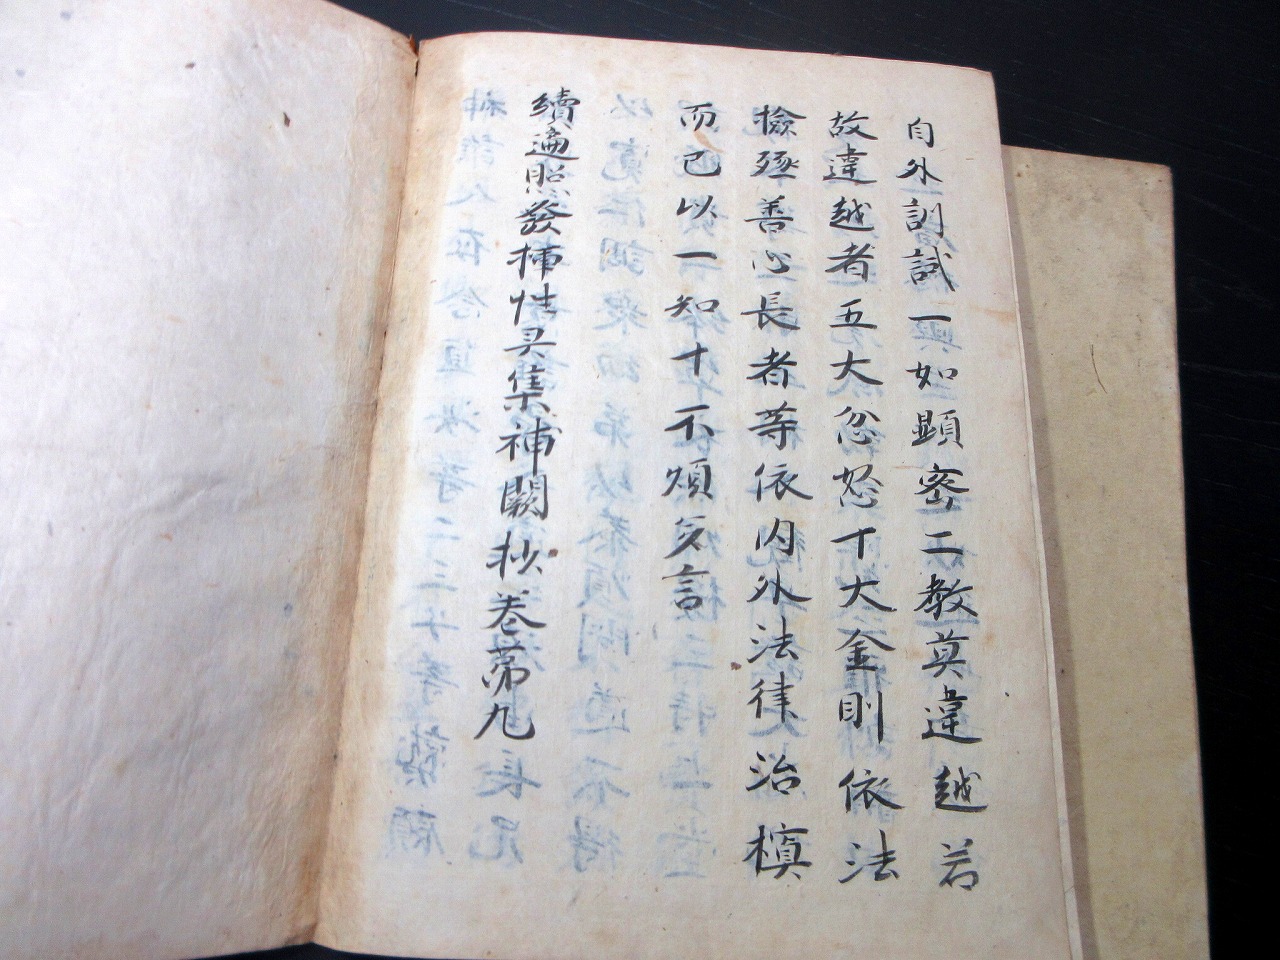 自外訓試一如顕密二教莫違越若
故違越者五大忿怒十大金剛依法
撿殛善心長者等依内外法律治㯰
而已以一知十不煩多言
續遍照發揮性灵集補闕抄巻苐九